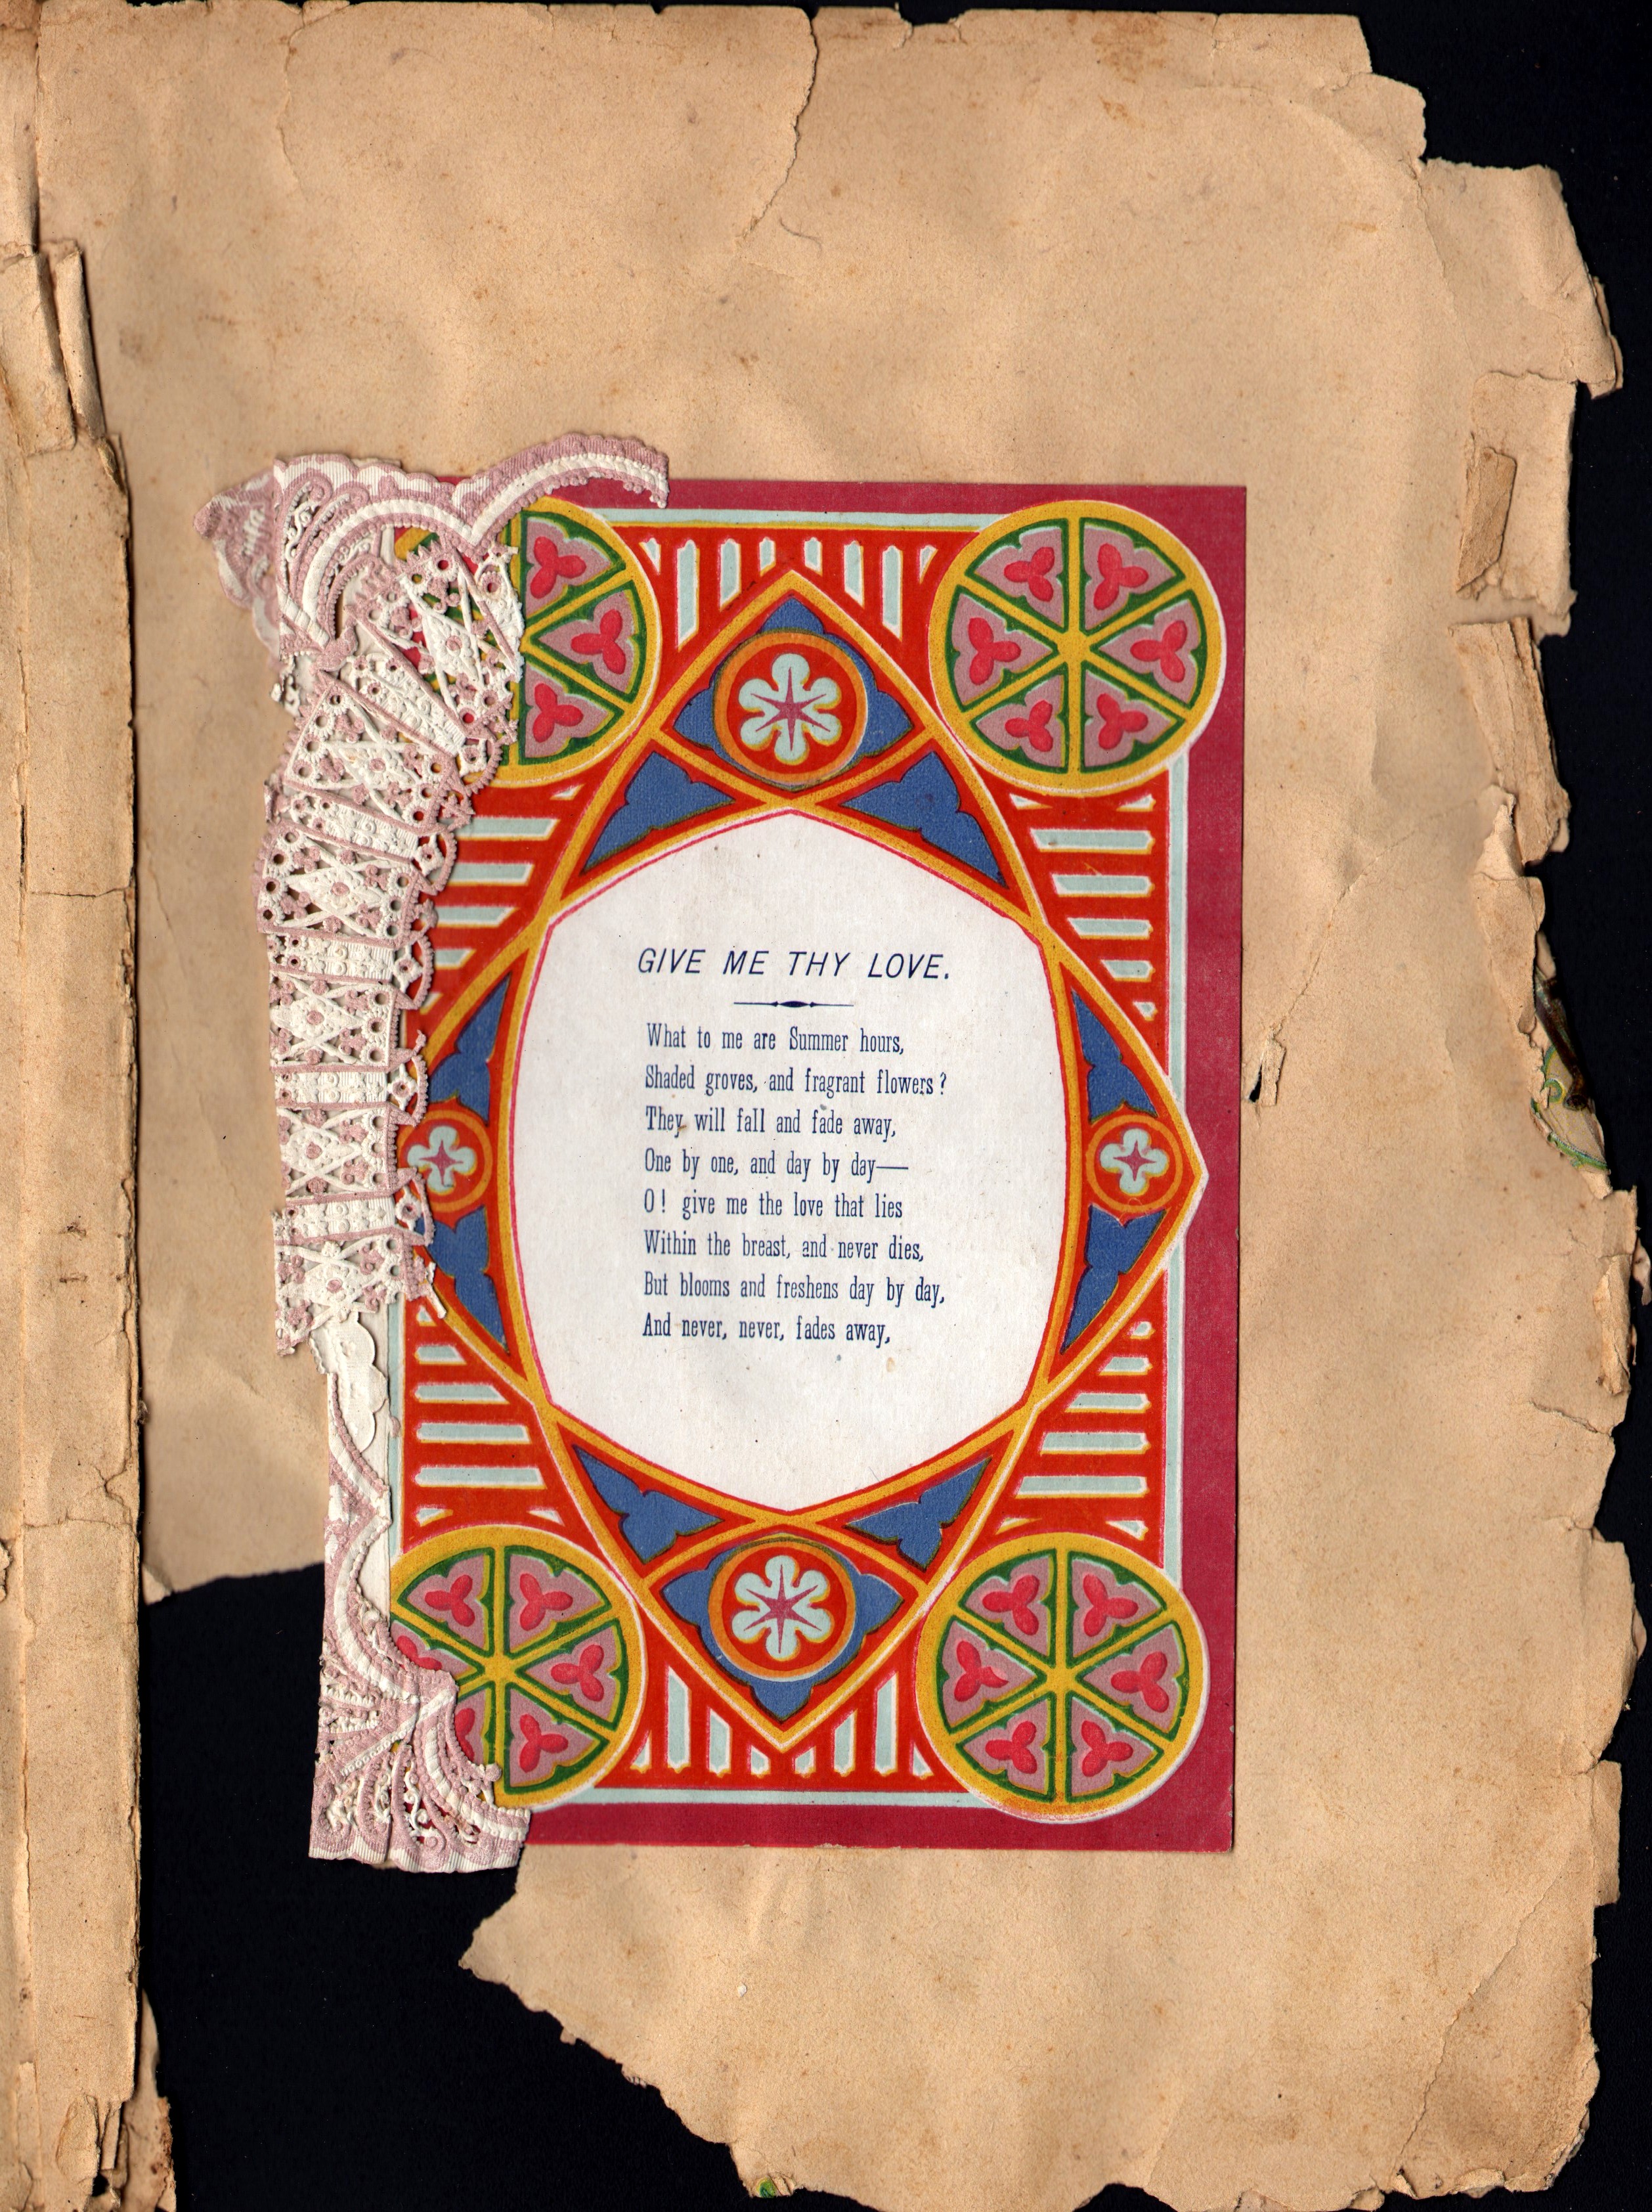 GIVE ME THY LOVE.
What to me are Summer hours,
Shaded groves, and fragrant flowers?
They will fall and fade away,
One by one, and day by day—
O! give me the love that lies
Within the breast, and never dies,
But blooms and freshens day by day,
And never, never, fades away,